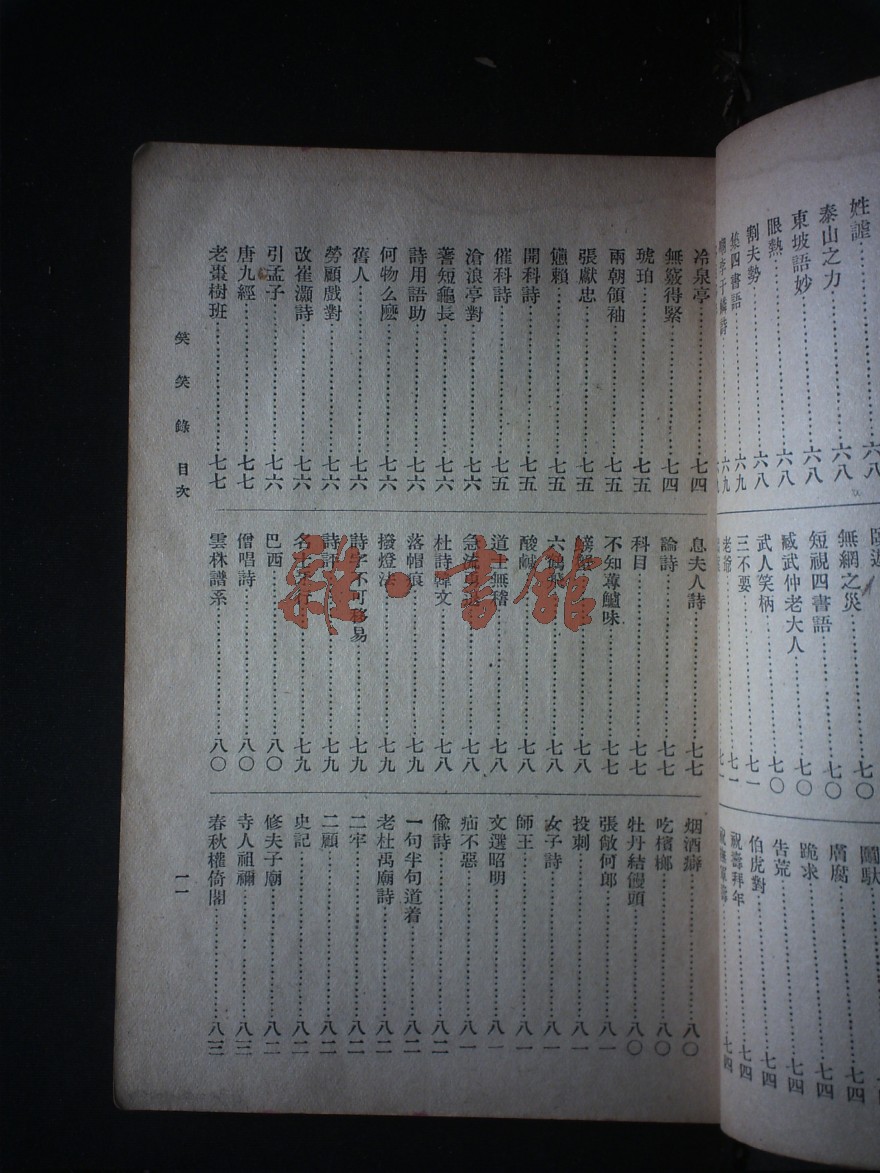 姓謔……六八
泰山之力……六八
東坡語妙……六八
眼熱……六八
割夫勢……六八
集四書語……六九
李于鱗詩……六九
無網之災……七〇
短視四書語……七〇
臧武仲老大人……七〇
武人笑柄……七〇
三不要……七一
老爺……七一
腐……七四
跪求……七四
告荒……七四
伯虎對……七四
祝壽拜年……七四
冷泉亭……七四
無簽得緊……七四
琥珀……七五
兩朝領袖……七五
張獻忠……七五
憊賴……七五
開科詩……七五
催科詩……七五
滄浪亭對……七六
蓍短龜長……七六
詩用語助……七六
何物么麼……七六
舊人……七六
勞顧戲對……七六
改崔灝詩……七六
引孟子……七六
唐九經……七七
老棗樹班……七七
息夫人詩……七七
論詩……七七
科目……七七
不知蓴鱸味……七七
螃蟹……七八
六鶂飛……七八
酸鹹……七八
道士無稽……七八
急流勇退……七八
杜詩韓文……七八
落帽痕……七九
撥燈法……七九
詩字不可移易……七九
詩評……七九
名士……七九
巴西……八〇
僧唱詩……八〇
雲林譜系……八〇
烟酒癖……八〇
吃檳榔……八〇
牡丹結饅頭……八〇
張敞何郎……八一
投刺……八一
女子詩……八一
師王……八一
文選昭明……八一
疝不惡……八一
偸詩……八二
一句半句道着……八二
老杜禹廟詩……八二
二牢……八二
二顧……八二
史記……八二
修夫子廟……八二
寺人祖禰……八三
春秋權倚閣……八三
笑笑錄 目次
一一
雜·書館